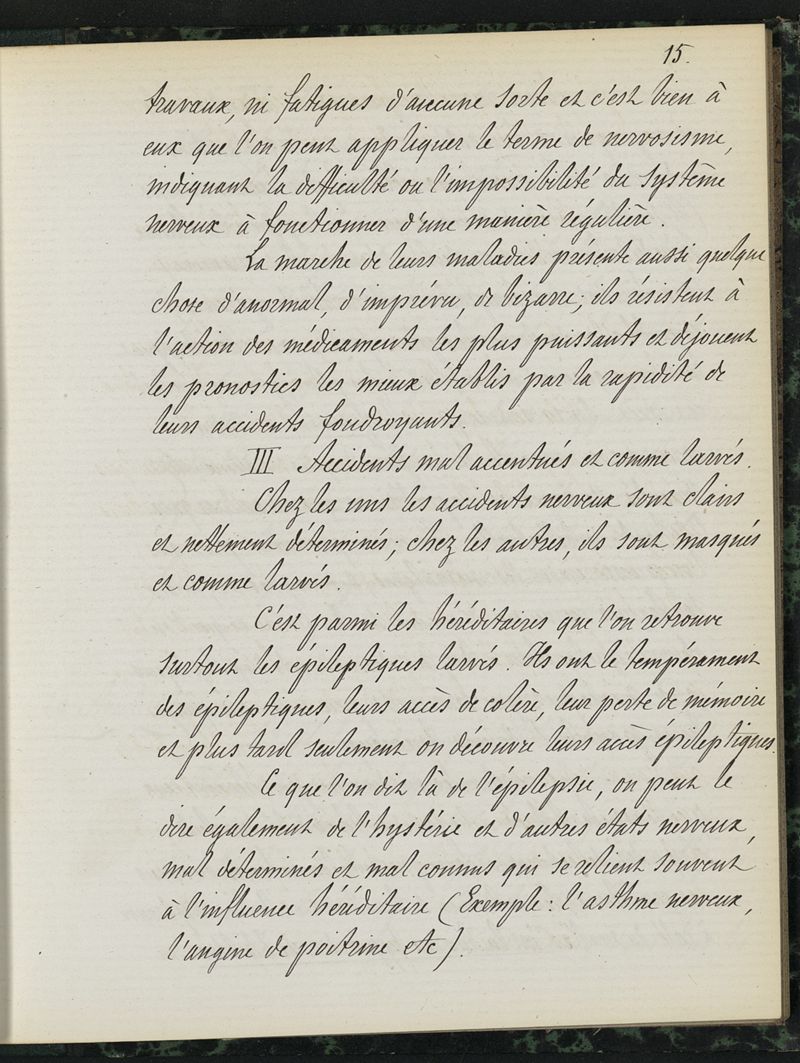 15.
travaux, ni fatigues d'aucune sorte et c'est bien à
eux que l'on peut appliquer le terme de nervosisme,
indiquant la difficulté ou l'impossibilité du système
nerveux à fonctionner d'une manière régulière.
La marche de leurs maladies présente aussi quelque
chose d'anormal, d'imprévu, de bizarre; ils résistent à
l'action des médicaments les plus puissants et déjouent
les pronostics les mieux établis par la rapidité de
leurs accidents foudroyants.
III Accidents mal accentués et comme larvés.
Chez les uns les accidents nerveux sont clairs
et nettement déterminés; chez les autres, ils sont masqués
et comme larvés.
C'est parmi les héréditaires que l'on retrouve
surtout les épileptiques larvés. Ils ont le tempérament
des épileptiques, leurs accès de colère, leur perte de mémoire
et plus tard seulement on découvre leurs accès épileptiques.
Ce que l'on dit là de l'épilepsie, on peut le
dire également de l'hystérie et d'autres états nerveux,
mal déterminés et mal connus qui se relient souvent
à l'influence héréditaire (Exemple: l'asthme nerveux,
l'angine de poitrine etc).